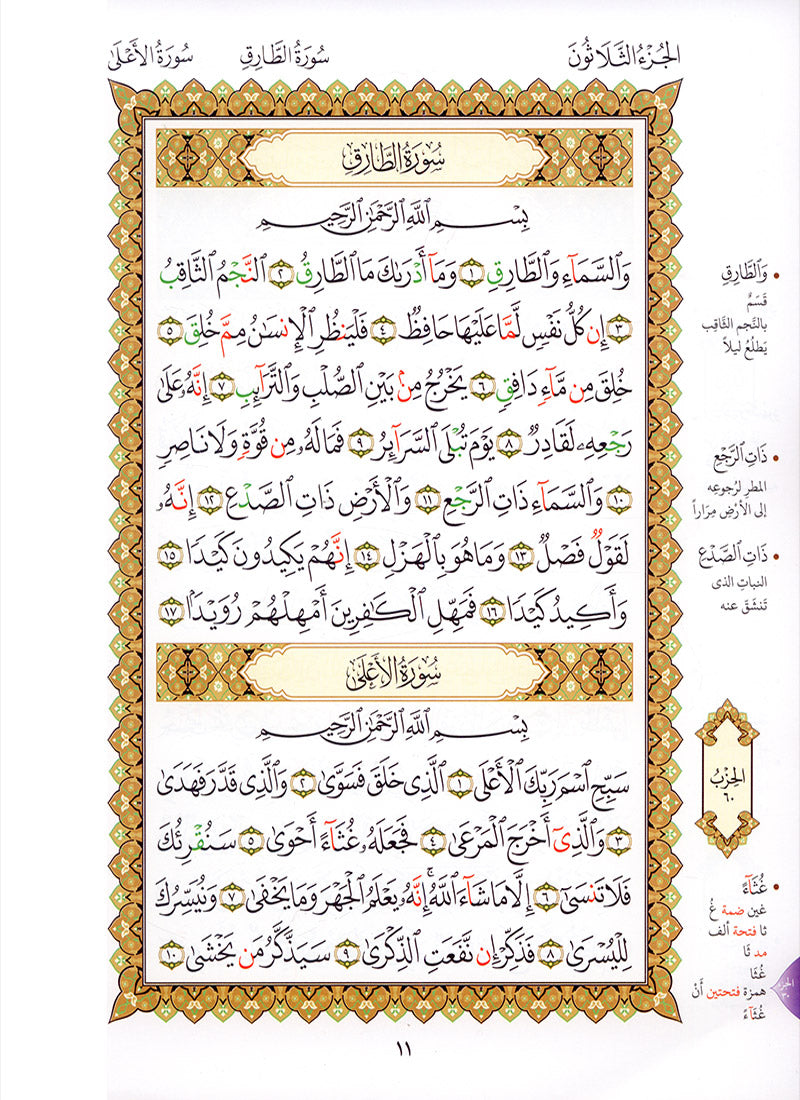 الجُزْءُ الثَّلَاثُونَ
سُورَةُ الطَّارِقِ
سُورَةُ الأَعْلَىٰ
سُورَةُ الطَّارِقِ
بِسْمِ ٱللَّهِ ٱلرَّحْمَٰنِ ٱلرَّحِيمِ
وَٱلسَّمَآءِ وَٱلطَّارِقِ ١ وَمَآ أَدْرَىٰكَ مَا ٱلطَّارِقُ ٢ ٱلنَّجْمُ ٱلثَّاقِبُ
٣ إِن كُلُّ نَفْسٍ لَّمَّا عَلَيْهَا حَافِظٌ ٤ فَلْيَنظُرِ ٱلْإِنسَٰنُ مِمَّ خُلِقَ ٥
خُلِقَ مِن مَّآءٍ دَافِقٍ ٦ يَخْرُجُ مِنۢ بَيْنِ ٱلصُّلْبِ وَٱلتَّرَآئِبِ ٧ إِنَّهُۥ عَلَىٰ
رَجْعِهِۦ لَقَادِرٌ ٨ يَوْمَ تُبْلَى ٱلسَّرَآئِرُ ٩ فَمَا لَهُۥ مِن قُوَّةٍ وَلَا نَاصِرٍ
١٠ وَٱلسَّمَآءِ ذَاتِ ٱلرَّجْعِ ١١ وَٱلْأَرْضِ ذَاتِ ٱلصَّدْعِ ١٢ إِنَّهُۥ
لَقَوْلٌ فَصْلٌ ١٣ وَمَا هُوَ بِٱلْهَزْلِ ١٤ إِنَّهُمْ يَكِيدُونَ كَيْدًا ١٥
وَأَكِيدُ كَيْدًا ١٦ فَمَهِّلِ ٱلْكَٰفِرِينَ أَمْهِلْهُمْ رُوَيْدًۢا ١٧
سُورَةُ الأَعْلَىٰ
بِسْمِ ٱللَّهِ ٱلرَّحْمَٰنِ ٱلرَّحِيمِ
سَبِّحِ ٱسْمَ رَبِّكَ ٱلْأَعْلَى ١ ٱلَّذِى خَلَقَ فَسَوَّىٰ ٢ وَٱلَّذِى قَدَّرَ فَهَدَىٰ
٣ وَٱلَّذِىٓ أَخْرَجَ ٱلْمَرْعَىٰ ٤ فَجَعَلَهُۥ غُثَآءً أَحْوَىٰ ٥ سَنُقْرِئُكَ
فَلَا تَنسَىٰٓ ٦ إِلَّا مَا شَآءَ ٱللَّهُ ۚ إِنَّهُۥ يَعْلَمُ ٱلْجَهْرَ وَمَا يَخْفَىٰ ٧ وَنُيَسِّرُكَ
لِلْيُسْرَىٰ ٨ فَذَكِّرْ إِن نَّفَعَتِ ٱلذِّكْرَىٰ ٩ سَيَذَّكَّرُ مَن يَخْشَىٰ ١٠
وَٱلطَّارِقِ
قَسَمٌ
بالنَّجم الثَّاقِب
يَطلُعُ ليلاً
ذَاتِ ٱلرَّجْعِ
المطرِ لرُجوعِه
إلى الأرْضِ مِرَاراً
ذَاتِ ٱلصَّدْعِ
النباتِ الذى
تَنشَقّ عنه
الحِزْبُ
٦٠
غُثَآءً
غين ضمة غُ
ثا فتحة ألف
مد ثَا
غُثَا
همزة فتحتين أً
غُثَآءً
الجزء
٣٠
١١